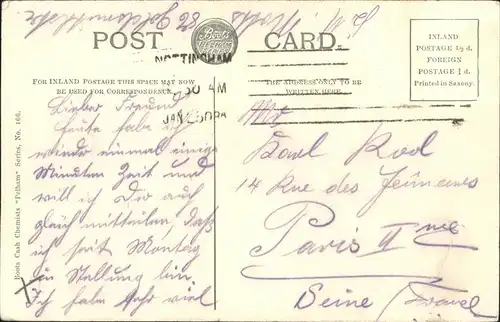 POST CARD.
Boots CASH CHEMISTS
NOTTINGHAM
30 AM
JAN
FOR INLAND POSTAGE THIS SPACE MAY NOW
BE USED FOR CORRESPONDENCE.
THE ADDRESS ONLY TO BE
WRITTEN HERE.
INLAND
POSTAGE ½ d.
FOREIGN
POSTAGE 1 d.
Printed in Saxony.
Boots Cash Chemists "Pelham" Series, No. 166.
Lieber Freund
Heute habe ich
wieder einmal einige
Minuten Zeit und
will ich Dir auch
gleich mitteilen, daß
ich seit Montag
in Stellung bin
Ich habe sehr viel
Karl
14 Rue des Jeûneurs
Paris II me
Seine